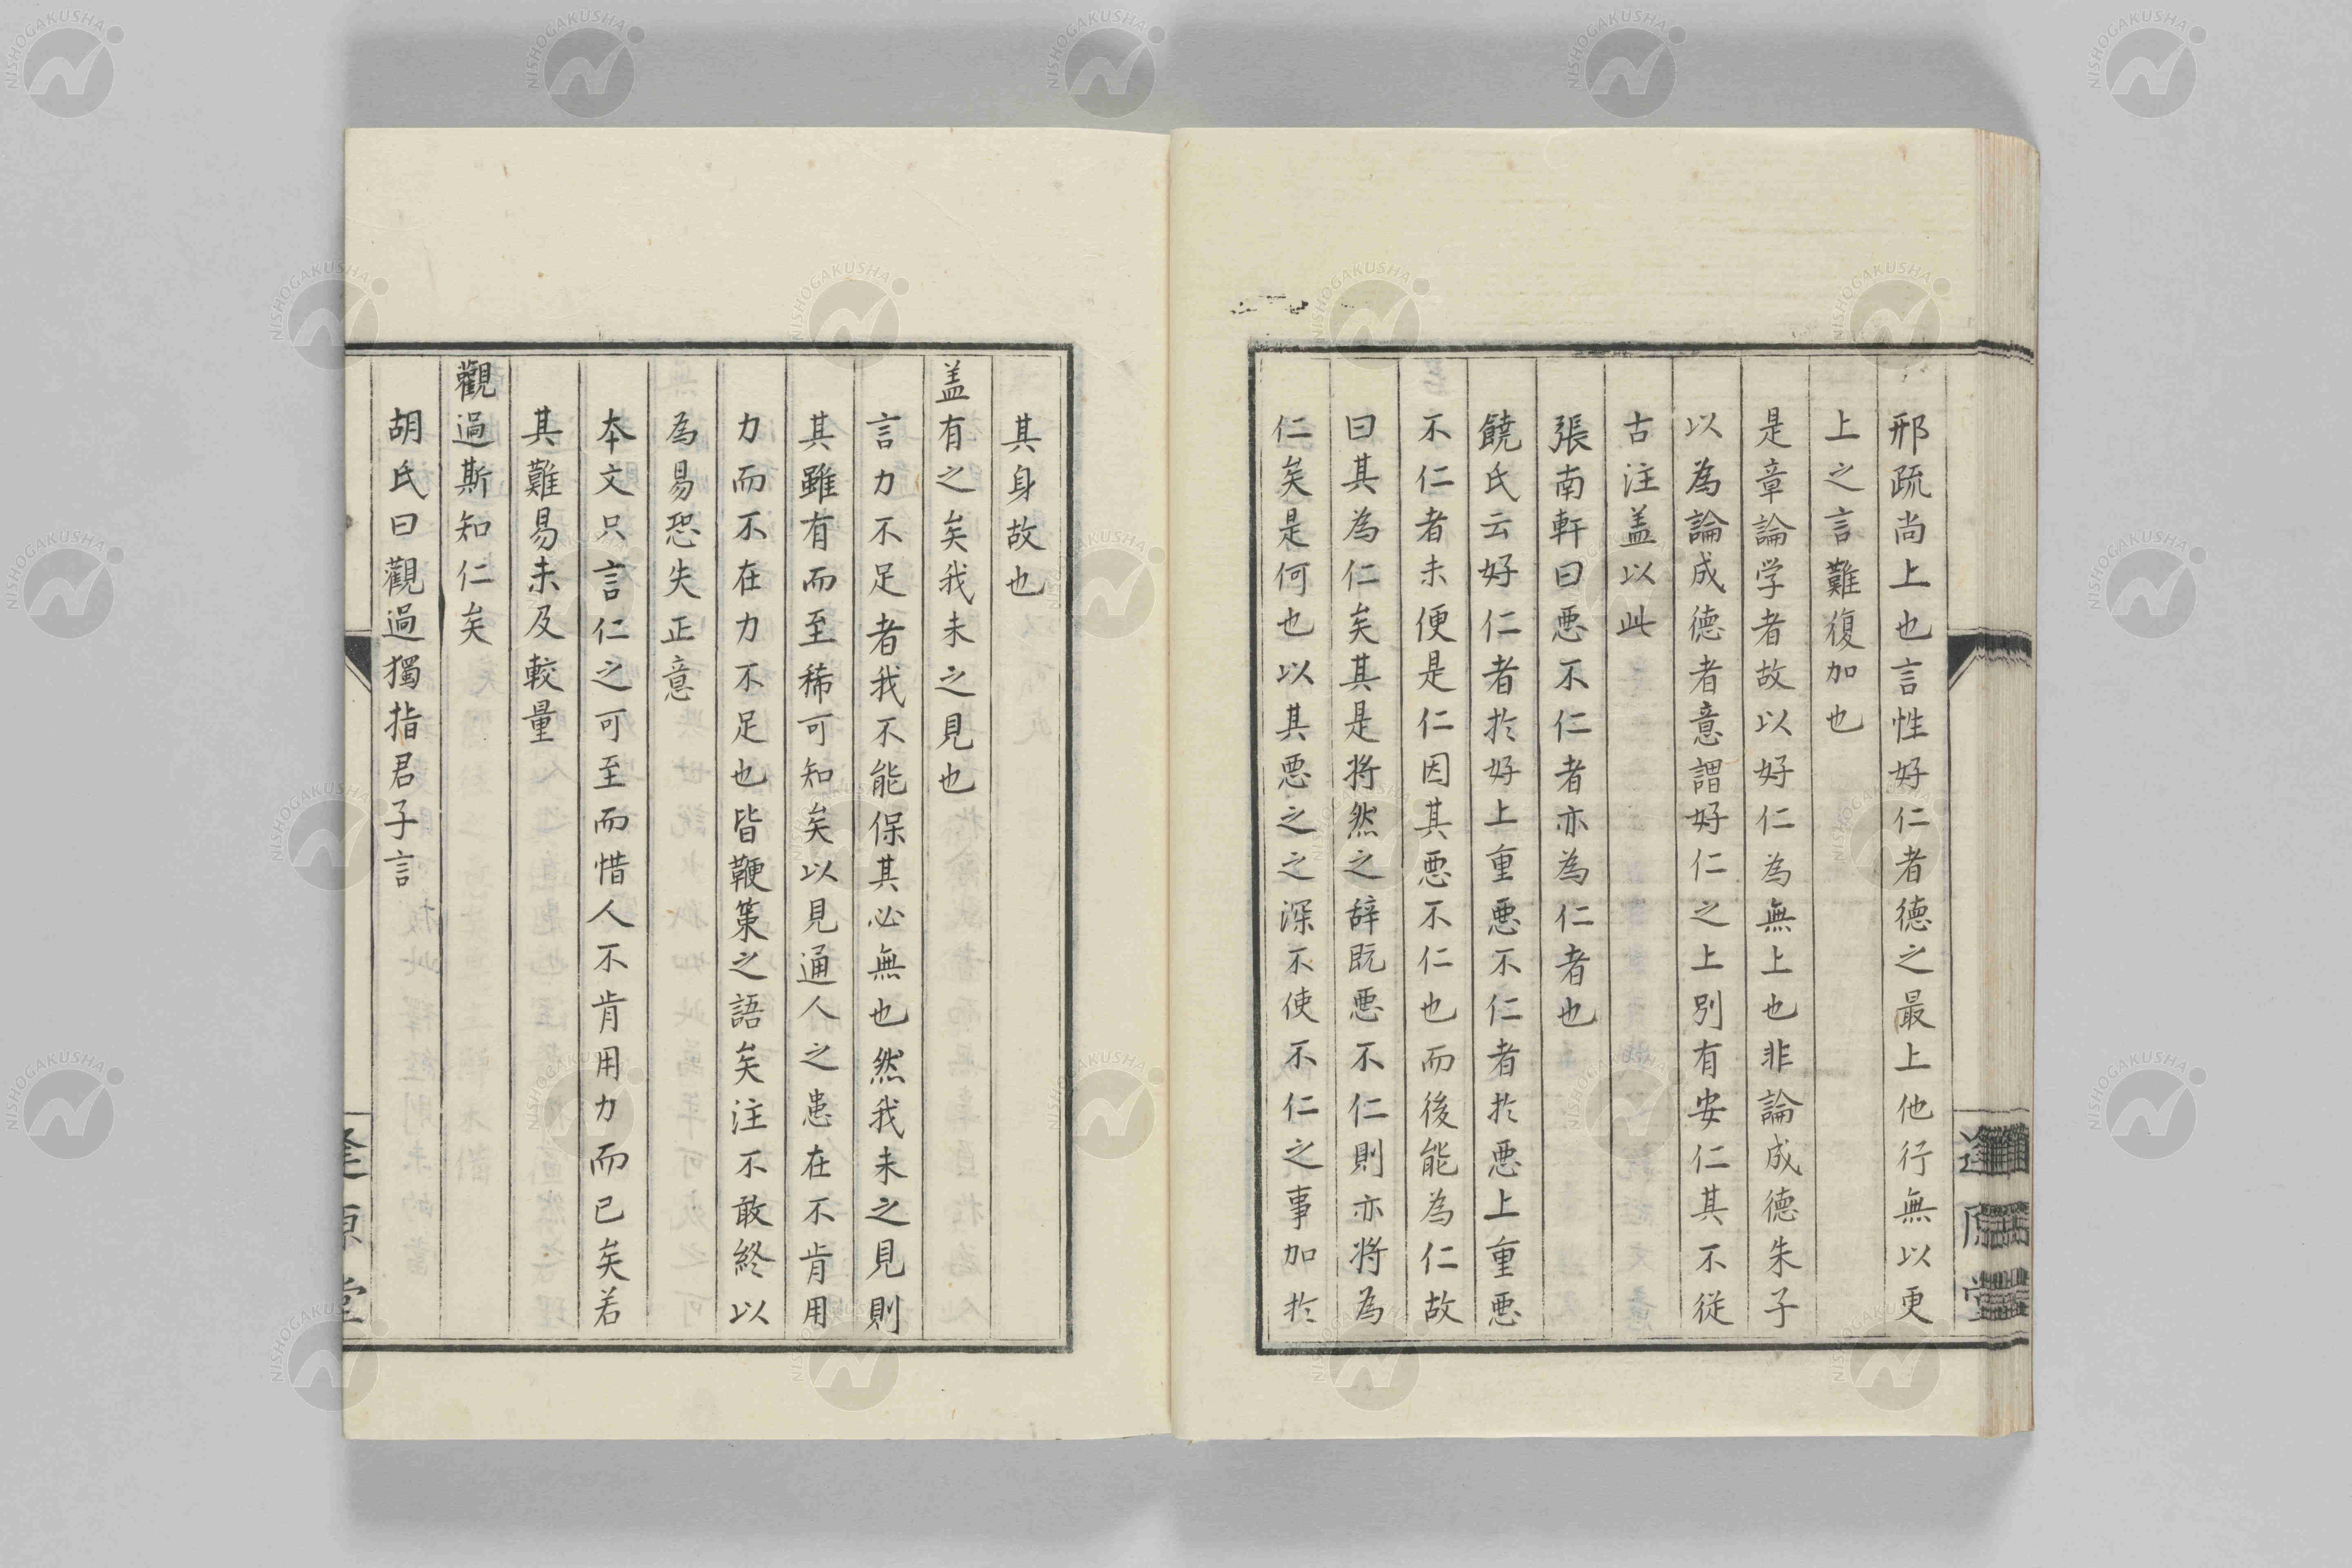 邢疏尚上也言性好仁者德之最上他行無以更
上之言難復加也
是章論学者故以好仁為無上也非論成德朱子
以為論成德者意謂好仁之上別有安仁其不従
古注盖以此
張南軒曰悪不仁者亦為仁者也
饒氏云好仁者於好上重悪不仁者於悪上重悪
不仁者未便是仁因其悪不仁也而後能為仁故
曰其為仁矣其是将然之辞既悪不仁則亦将為
仁矣是何也以其悪之之深不使不仁之事加於
其身故也
盖有之矣我未之見也
言力不足者我不能保其必無也然我未之見則
其雖有而至稀可知矣以見通人之患在不肯用
力而不在力不足也皆鞭策之語矣注不敢終以
為易恐失正意
本文只言仁之可至而惜人不肯用力而已矣若
其難易未及較量
觀過斯知仁矣
胡氏曰觀過獨指君子言
逢原堂
逢原堂
NISHOGAKUSHA